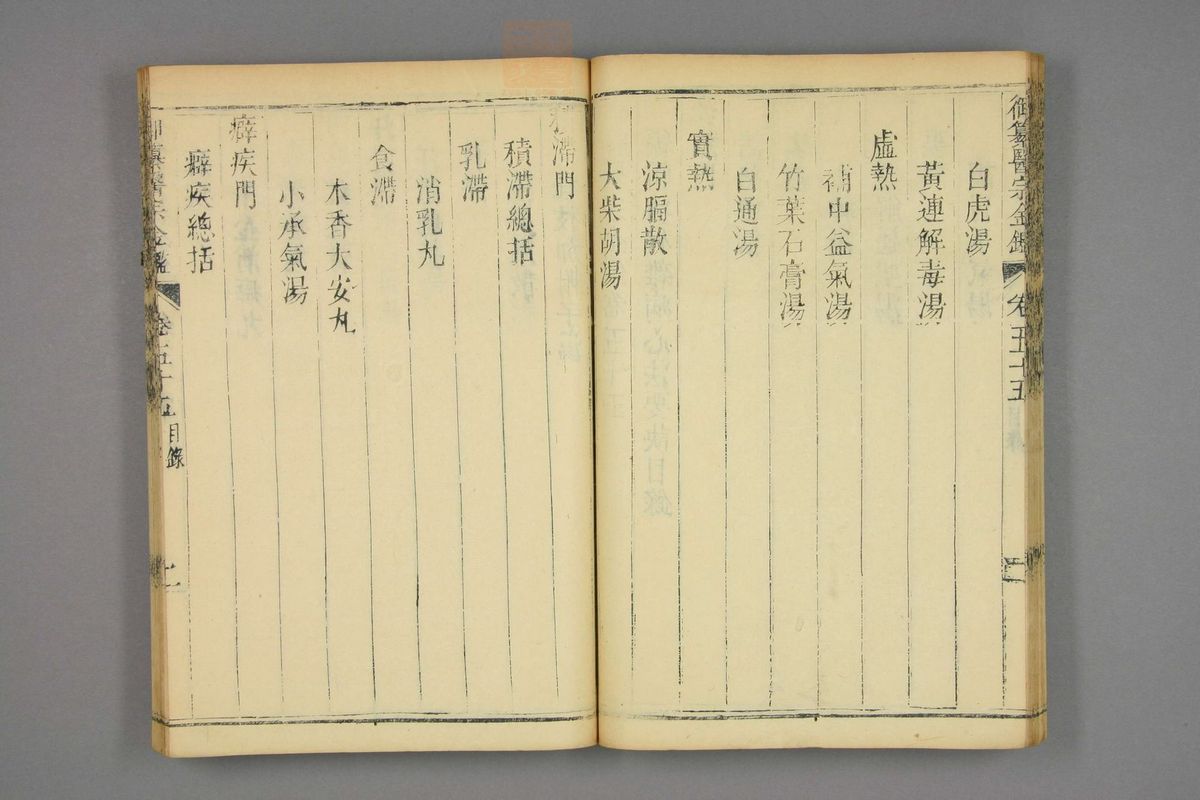 御纂醫宗金鑑 卷五十五
白虎湯
黃連解毒湯
虛熱
補中益氣湯
竹葉石膏湯
白通湯
實熱
涼膈散
大柴胡湯
滯門
積滯總括
乳滯
消乳丸
食滯
木香大安丸
小承氣湯
癖疾門
癖疾總括
御纂醫宗金鑑 卷五十五 目錄 二